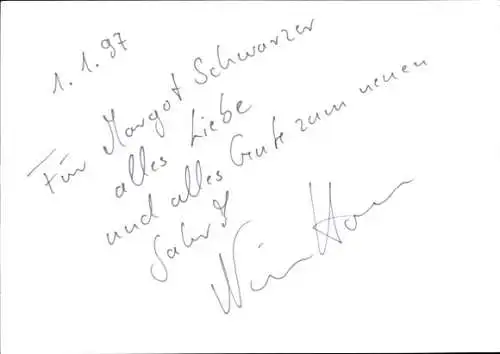 1.1.97
Für Margot Schwarzer
alles Liebe
und alles Gute zum neuen
Jahr!